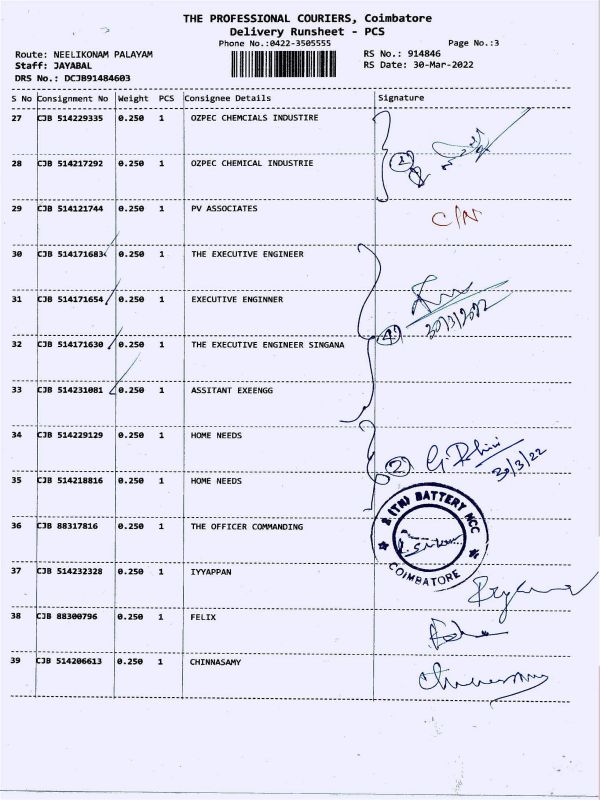 THE PROFESSIONAL COURIERS, Coimbatore
Delivery Runsheet - PCS
Phone No.:0422-3505555
Page No.:3
Route: NEELIKONAM PALAYAM
RS No.: 914846
Staff: JAYABAL
RS Date: 30-Mar-2022
DRS No.: DCJB91484603
S No Consignment No Weight PCS Consignee Details Signature
27 CJB 514229335 0.250 1 OZPEC CHEMCIALS INDUSTIRE
28 CJB 514217292 0.250 1 OZPEC CHEMICAL INDUSTRIE 2
29 CJB 514121744 0.250 1 PV ASSOCIATES C/N
30 CJB 514171683 0.250 1 THE EXECUTIVE ENGINEER
31 CJB 514171654 0.250 1 EXECUTIVE ENGINNER
30/3/2022
32 CJB 514171630 0.250 1 THE EXECUTIVE ENGINEER SINGANA 4
33 CJB 514231081 0.250 1 ASSITANT EXEENGG
34 CJB 514229129 0.250 1 HOME NEEDS
2 30/3/22
35 CJB 514218816 0.250 1 HOME NEEDS
2 (TN) BATTERY NCC
36 CJB 88317816 0.250 1 THE OFFICER COMMANDING
COIMBATORE
37 CJB 514232328 0.250 1 IYYAPPAN
38 CJB 88300796 0.250 1 FELIX
39 CJB 514206613 0.250 1 CHINNASAMY